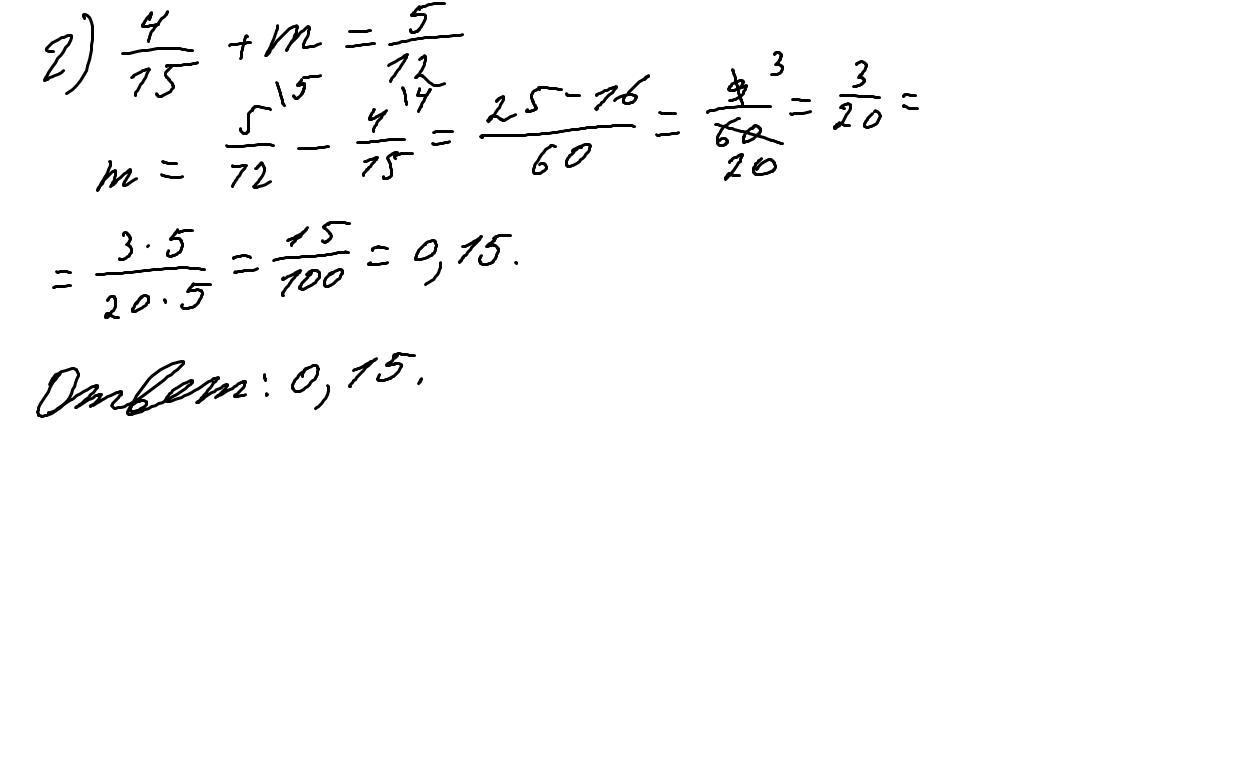 2) 4/15 + m = 5/12
m = 5\5/12 − 4\4/15 = (25−16)/60 = 9 3/60 20 = 3/20 =
= (3·5)/(20·5) = 15/100 = 0,15.
Ответ: 0,15.